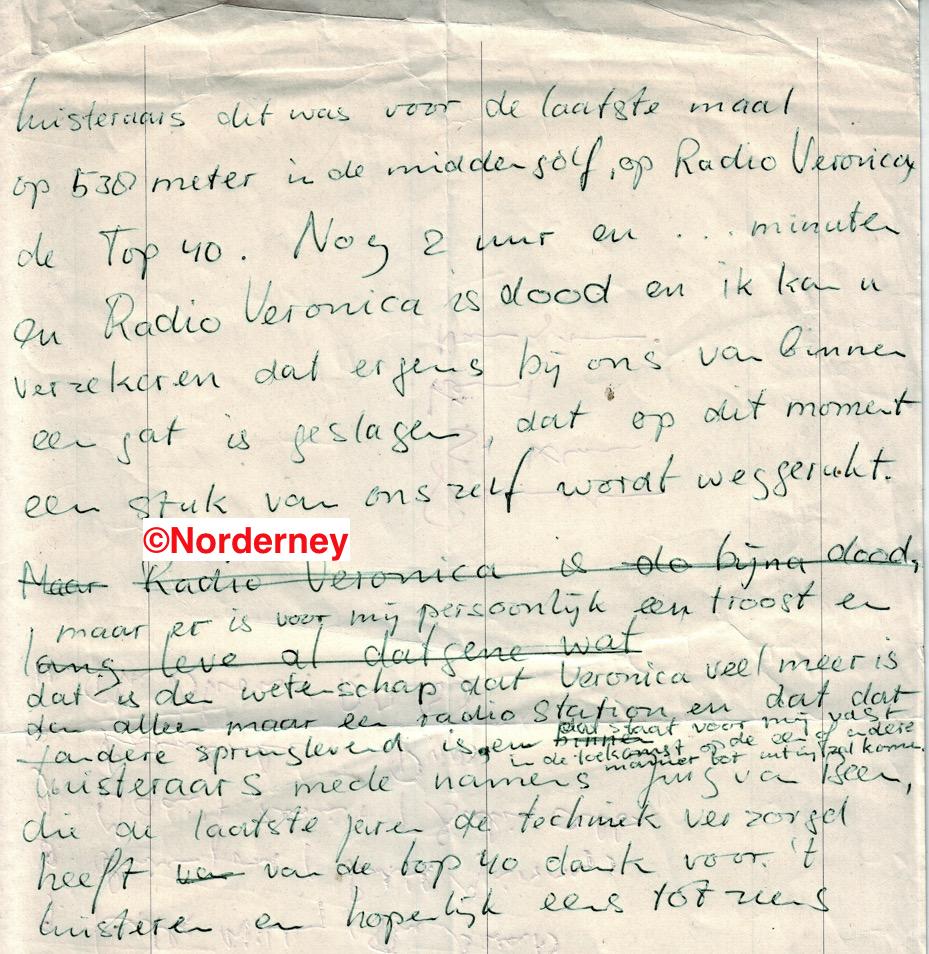 luisteraars dit was voor de laatste maal
op 538 meter in de middengolf, op Radio Veronica,
de Top 40. Nog 2 uur en ... minuten
en Radio Veronica is dood en ik kan u
verzekeren dat ergens bij ons van binnen
een gat is geslagen, dat op dit moment
een stuk van ons zelf wordt weggerukt.
©Norderney
Maar Radio Veronica is do bijna dood,
maar er is voor mij persoonlijk een troost en
lang leve al datgene wat
dat is de wetenschap dat Veronica veel meer is
dan alleen maar een radio station en dat dat
andere springlevend is, en binnen
dat staat voor mij vast
in de toekomst op de een of andere
manier tot uiting zal komen.
luisteraars mede namens Jurg van Been,
die de laatste jaren de techniek verzorgd
heeft van van de top 40 dank voor 't
luisteren en hopelijk eens tot ziens